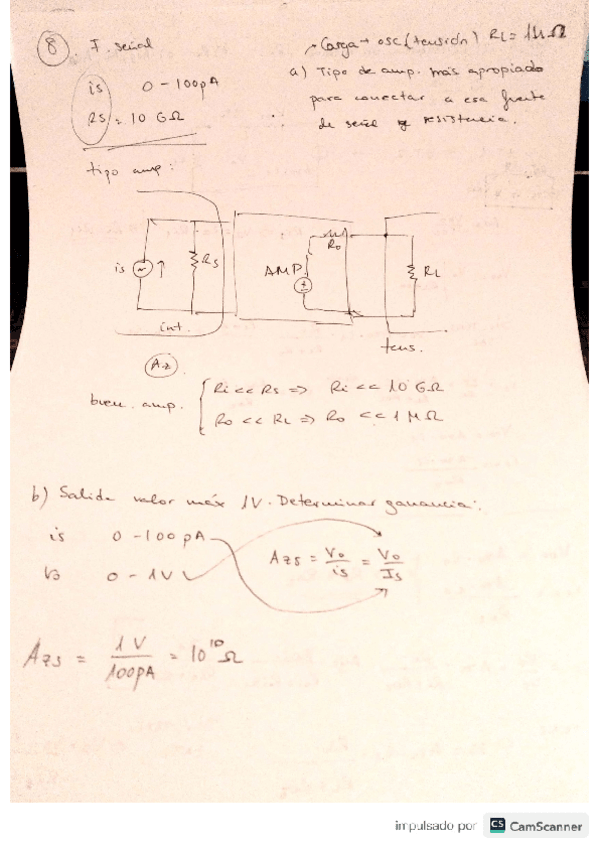 8. F. señal
Carga → osc (tensión) RL = 1MΩ
is 0 - 100pA
RS = 10 GΩ
a) Tipo de amp. más apropiado
para conectar a esa fuente
de señal y resistencia.
tipo amp:
is
RS
AMP
Ro
RL
int.
tens.
Az
buen. amp.
Ri << RS => Ri << 10 GΩ
Ro << RL => Ro << 1 MΩ
b) Salida valor máx 1V. Determinar ganancia:
is 0 - 100 pA
Vo 0 - 1V
AZS = Vo/is = Vo/Is
AZS = 1V/100pA = 10^10 Ω
impulsado por CS CamScanner